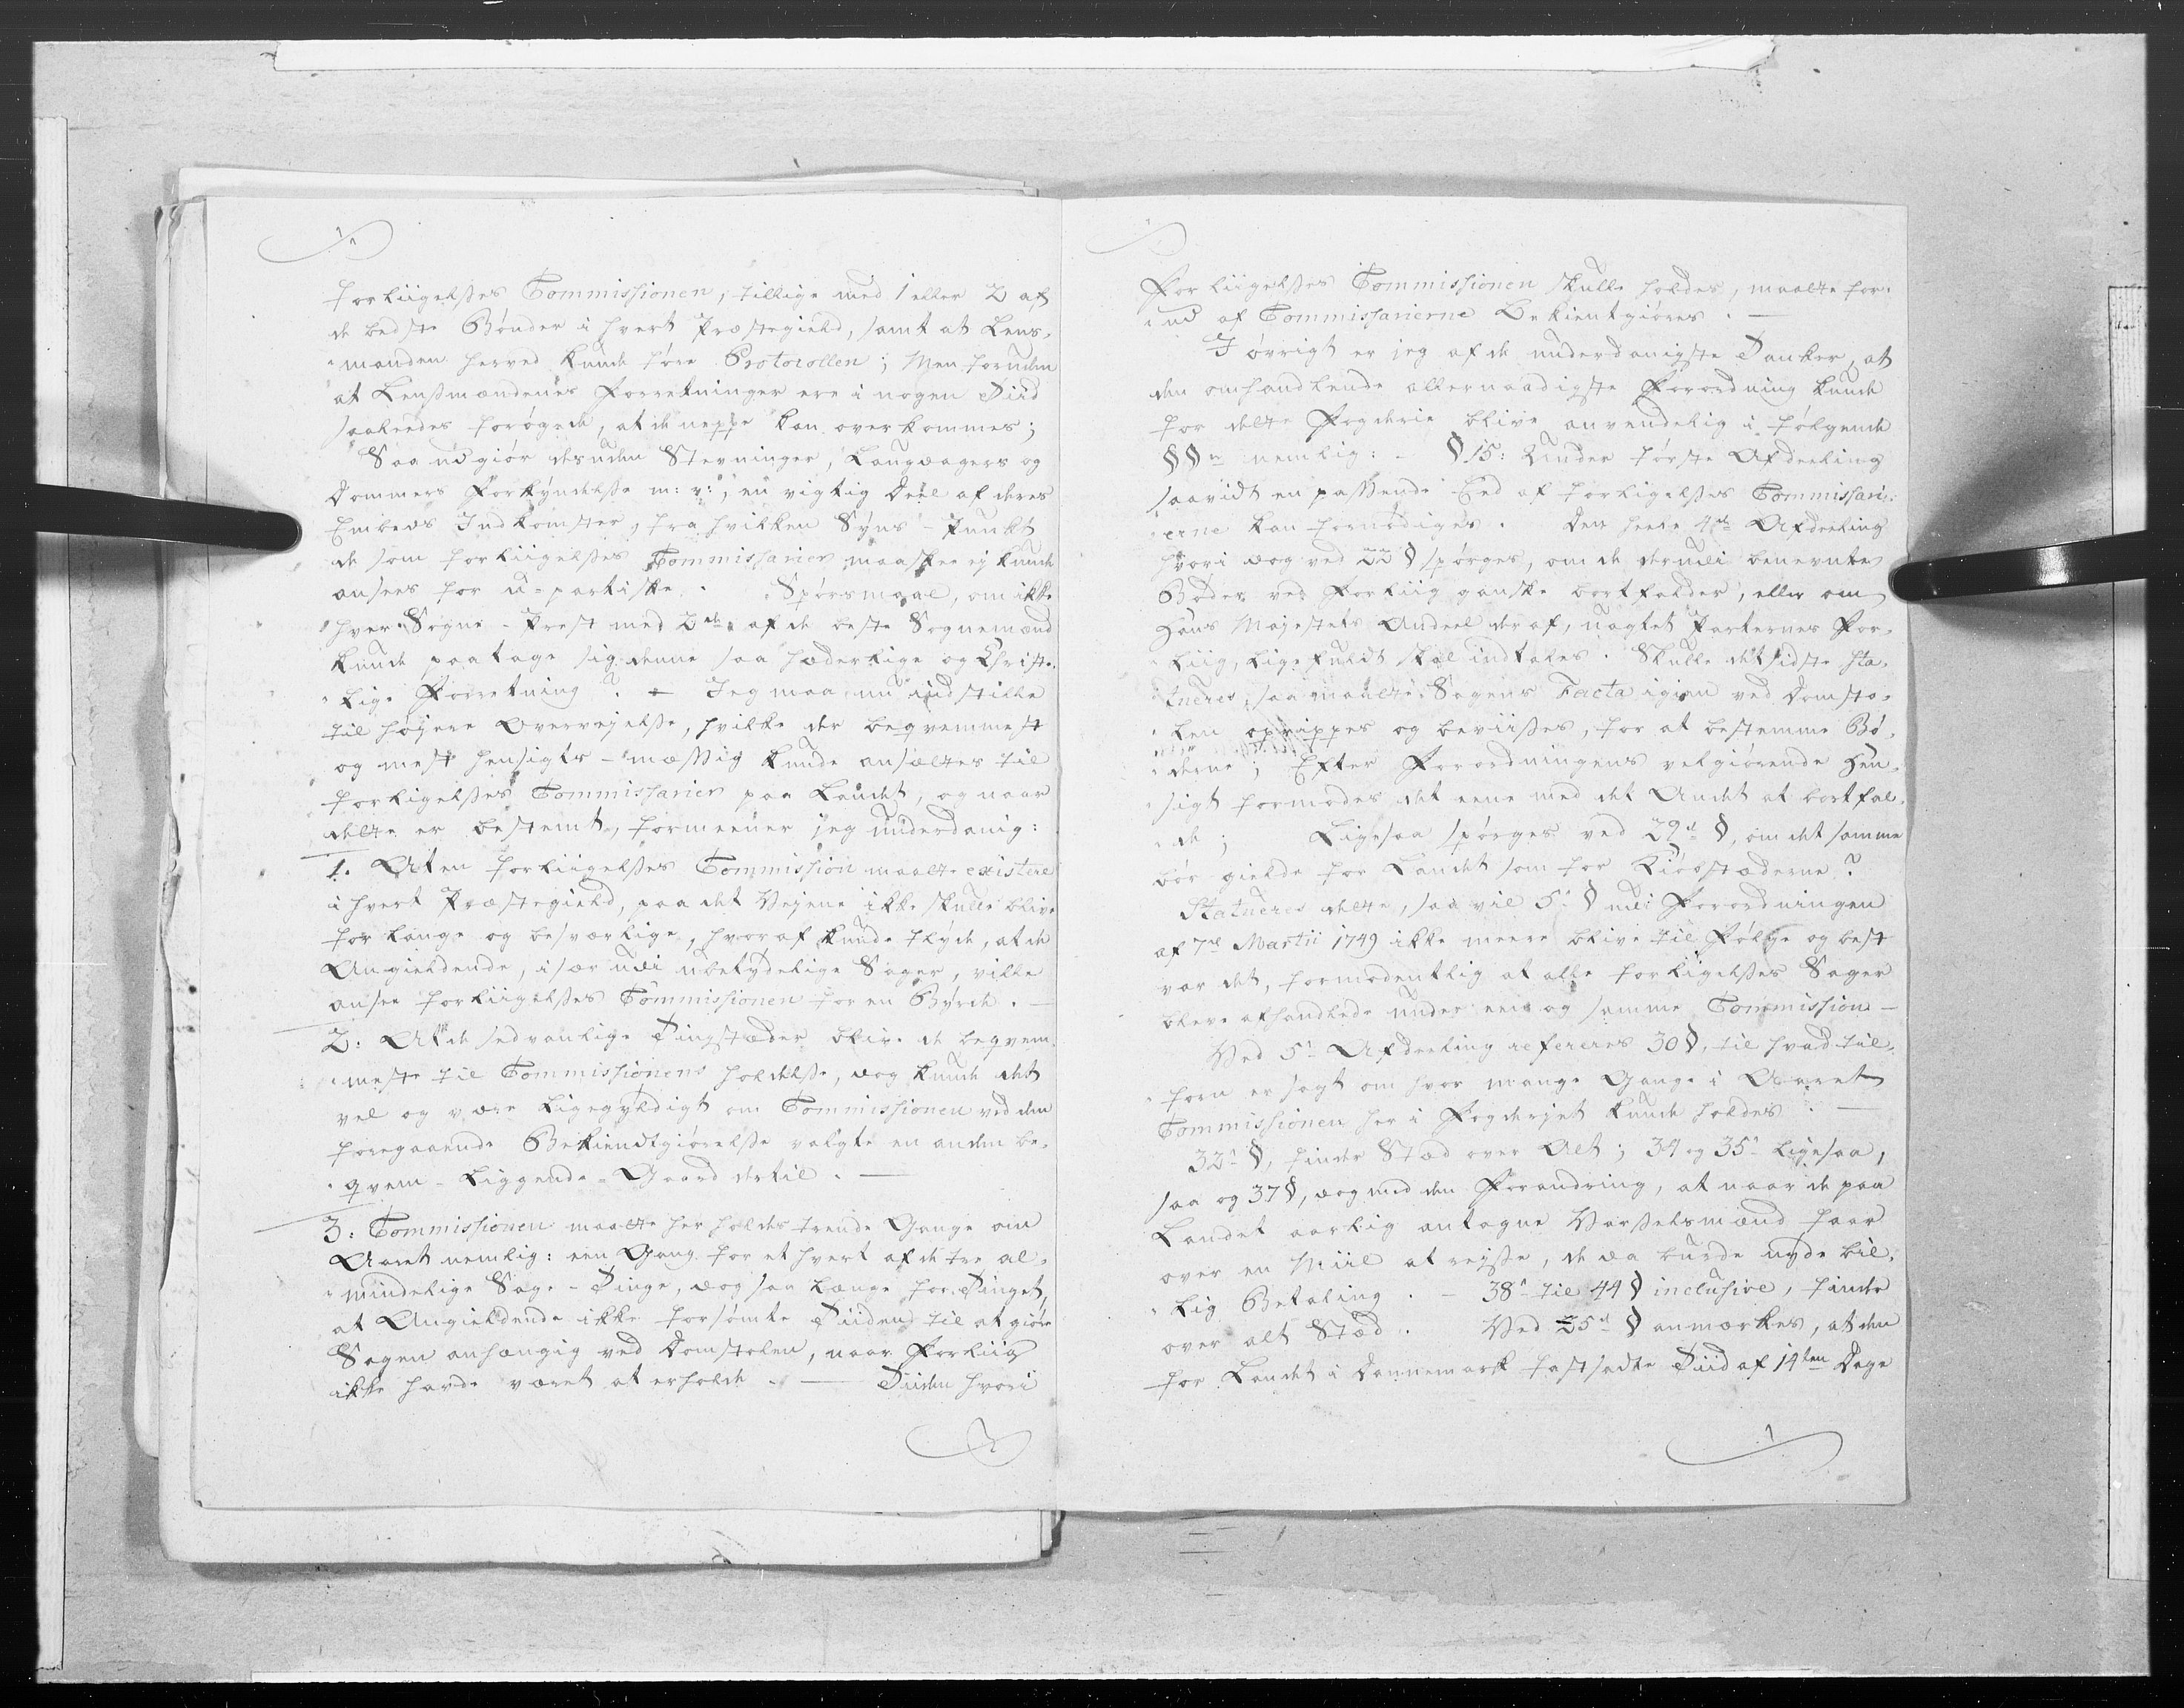 forliigelses Commissionen, tillige med 1 eller 2 af
de bedste Bønder i hvert Præstegield, samt at Lens-
manden herved kunde føre Protocollen; Men foruden
at Lensmændenes Forretninger ere i nogen Tiid
saaledes forøgede, at de neppe kan overkommes;
Saa udgiør desuden Stevninger, Laugdagers og
Dommers Forkyndelse m: v:, en vigtig Deel af deres
Embeds Indkomster, fra hvilken Syns-Punkt
de som forliigelses Commissarier maaskee ej kunde
ansees for u-partiske. Spørsmaal, om ikke
hver Sogne-Prest med 2de af de beste Sognemænd
kunde paatage sig denne saa hæderlige og Christe-
lige Forretning? - Jeg maa nu indstille
til høyere Overvejelse, hvilke der beqvemmest
og mest hensigts-mæssig kunde ansættes til
forligelses Commissarier paa Landet, og naar
dette er bestemt, formeener jeg underdanig:
1. At en forliigelses Commission maatte existere
i hvert Præstegield, paa det Vejene ikke skulle blive
for lange og besværlige, hvoraf kunde flyde, at de
Angieldende, i sær udi ubetydelige Sager, vilde
ansee forliigelses Commissionen for en Byrde. -
2: At de sedvanlige Tingstæder bliver de beqvem-
meste til Commissionens holdelse, dog kunde det
vel og være ligegyldigt om Commissionen ved den
foregaaende Bekiendtgiørelse valgte en anden be-
qvem-liggende-Gaard dertil. -
3: Commissionen maatte her holdes trende Gange om
Aaret nemlig: een Gang for et hvert af de tre al-
mindelige Sage-Tinge, dog saa længe for Tinget,
at Angieldende ikke forsømte Tiiden til at giøre
Sagen anhængig ved Domstolen, naar Forliig
ikke havde været at erholde. - Tiiden hvori
Forliigelses Commissionen skulle holdes, maatte for-
ud af Commissarierne Bekientgiøres. -
I øvrigt er jeg af de underdanigste Tanker, at
den omhandlende allernaadigste Forordning kunde
for dette Fogderie blive anvendelig i følgende
§§er nemlig: - § 15: Under første Afdeeling
saavidt en passende Eed af forligelses Commissari-
erne kan fornødiges. Den heele 4de Afdeeling
hvori dog ved 22 § spørges, om de derudi benevnte
Bøder ved Forliig ganske bortfalder, eller om
Hans Majestets Andeel deraf, uagtet Parternes For-
liig, ligefuldt skal indtales. Skulle det sidste sta-
tueres, saa maatte Sagens Facta igien ved Domsto-
len oprippes og beviises, for at bestemme Bø-
derne; Efter Forordningens velgiørende Hen-
sigt formodes det eene med det Andet at bortfal-
de; Ligesaa spørges ved 29de §, om det samme
bør gielde for Landet som for Kiøbstæderne?
Statueres dette, saa vil 5te § udi Forordningen
af 7de Martii 1749 ikke meere blive til Følge og best
var det, formodentlig at alle forligelses Sager
bleve afhandlede under een og samme Commission -
Ved 5te Afdeeling refereres 30 §, til hvad til-
forn er sagt om hvor mange Gange i Aaret
Commissionen her i Fogderjet kunde holdes. -
33te §, finder Stæd over Alt; 34 og 35te ligesaa,
saa og 37 §, dog med den Forandring, at naar de paa
Landet aarlig antagne Varselsmænd faar
over en Miil at rejse, de da burde nyde bil-
lig Betaling. - 38te til 44 § inclusive, finder
over alt Stæd. Ved 35te § anmærkes, at den
for Landet i Dannemark fastsadte Tiid af 14ten Dage